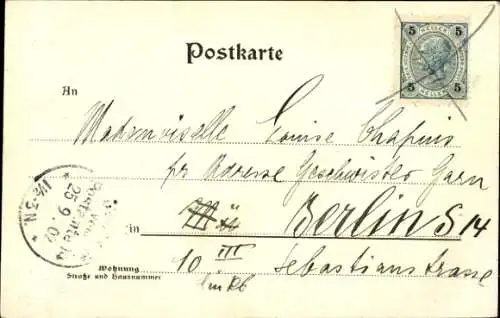 Postkarte
5 HELLER 5
5 HELLER 5
An
Mademoiselle Louise Chapuis
pr Adresse Geschwister Garn
in Berlin S 14
Wohnung
Straße und Hausnummer
10 III Sebastianstrasse
links
25.9.02